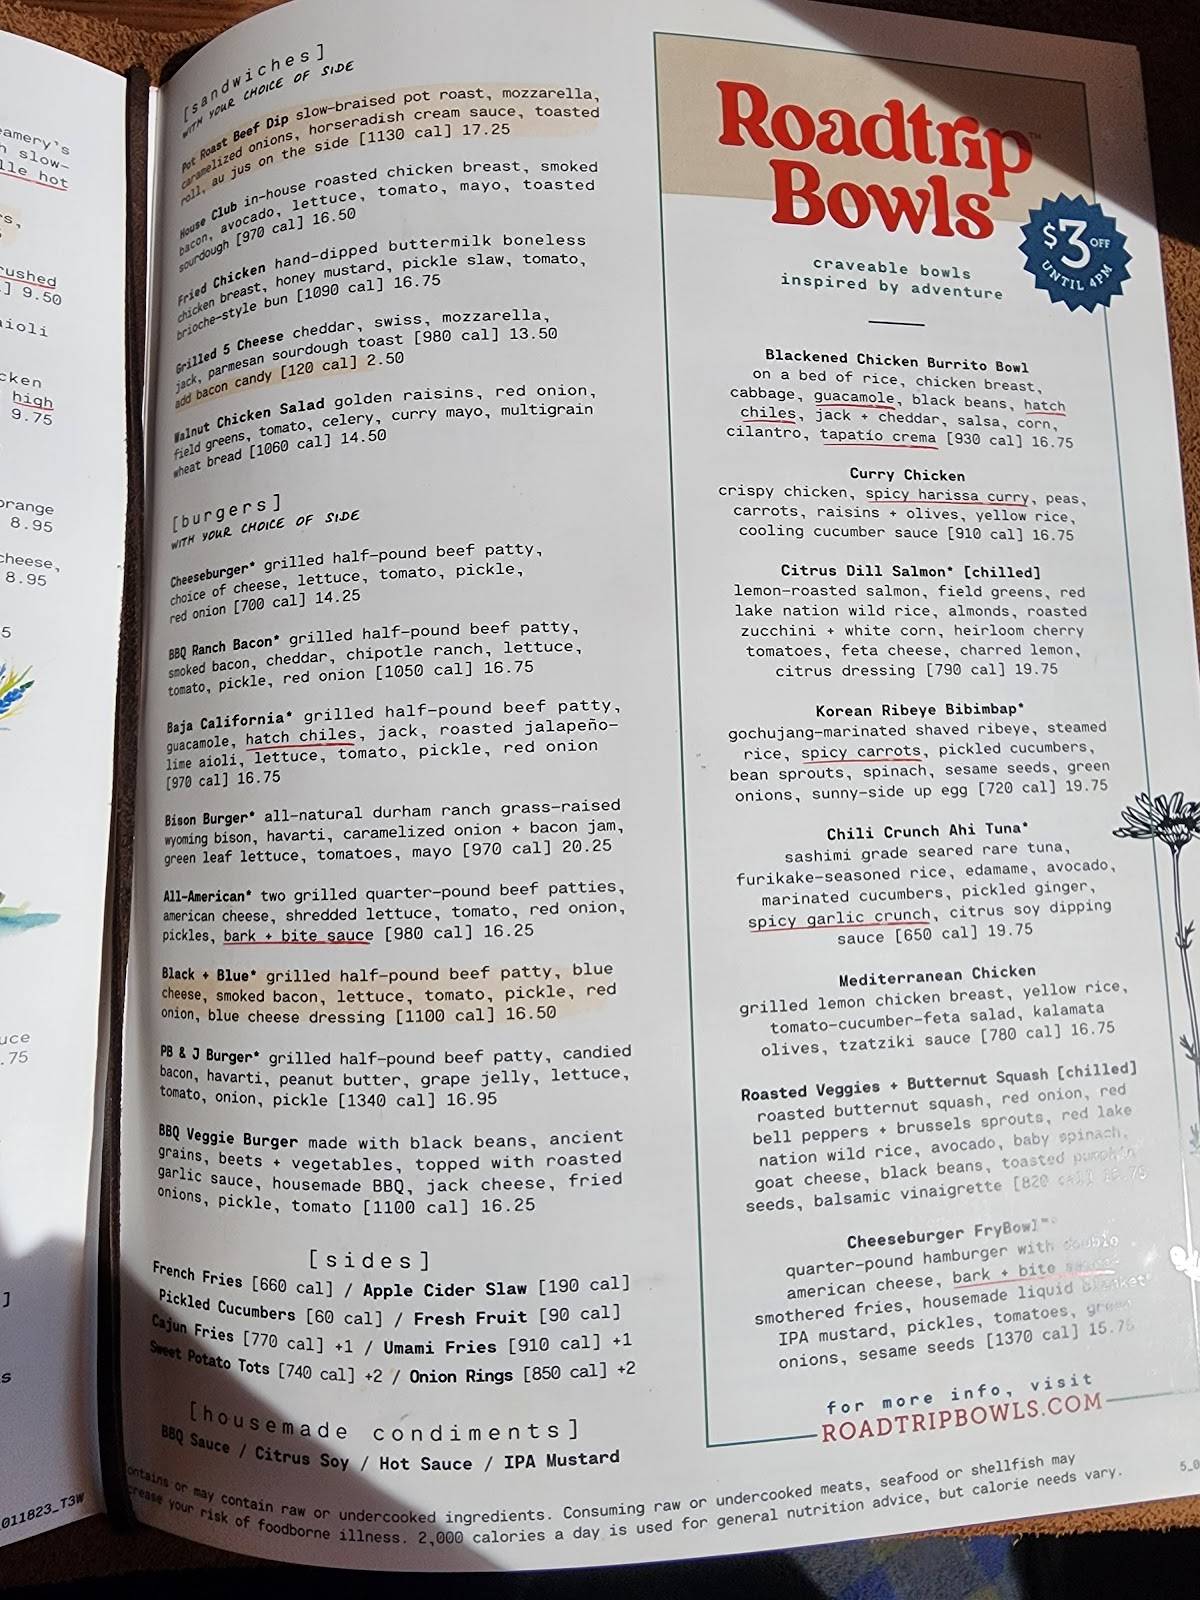 eamery's
h slow-
lle hot
rs,
rushed
] 9.50
aioli
cken
high
9.75
orange
8.95
cheese,
8.95
5
uce
.75
]
s
011823_T3W
[sandwiches]
WITH YOUR CHOICE OF SIDE
Pot Roast Beef Dip slow-braised pot roast, mozzarella,
caramelized onions, horseradish cream sauce, toasted
roll, au jus on the side [1130 cal] 17.25
House Club in-house roasted chicken breast, smoked
bacon, avocado, lettuce, tomato, mayo, toasted
sourdough [970 cal] 16.50
Fried Chicken hand-dipped buttermilk boneless
chicken breast, honey mustard, pickle slaw, tomato,
brioche-style bun [1090 cal] 16.75
Grilled 5 Cheese cheddar, swiss, mozzarella,
jack, parmesan sourdough toast [980 cal] 13.50
add bacon candy [120 cal] 2.50
Walnut Chicken Salad golden raisins, red onion,
field greens, tomato, celery, curry mayo, multigrain
wheat bread [1060 cal] 14.50
[burgers]
WITH YOUR CHOICE OF SIDE
Cheeseburger* grilled half-pound beef patty,
choice of cheese, lettuce, tomato, pickle,
red onion [700 cal] 14.25
BBQ Ranch Bacon* grilled half-pound beef patty,
smoked bacon, cheddar, chipotle ranch, lettuce,
tomato, pickle, red onion [1050 cal] 16.75
Baja California* grilled half-pound beef patty,
guacamole, hatch chiles, jack, roasted jalapeño-
lime aioli, lettuce, tomato, pickle, red onion
[970 cal] 16.75
Bison Burger* all-natural durham ranch grass-raised
wyoming bison, havarti, caramelized onion + bacon jam,
green leaf lettuce, tomatoes, mayo [970 cal] 20.25
All-American* two grilled quarter-pound beef patties,
american cheese, shredded lettuce, tomato, red onion,
pickles, bark + bite sauce [980 cal] 16.25
Black + Blue* grilled half-pound beef patty, blue
cheese, smoked bacon, lettuce, tomato, pickle, red
onion, blue cheese dressing [1100 cal] 16.50
PB & J Burger* grilled half-pound beef patty, candied
bacon, havarti, peanut butter, grape jelly, lettuce,
tomato, onion, pickle [1340 cal] 16.95
BBQ Veggie Burger made with black beans, ancient
grains, beets + vegetables, topped with roasted
garlic sauce, housemade BBQ, jack cheese, fried
onions, pickle, tomato [1100 cal] 16.25
[sides]
French Fries [660 cal] / Apple Cider Slaw [190 cal]
Pickled Cucumbers [60 cal] / Fresh Fruit [90 cal]
Cajun Fries [770 cal] +1 / Umami Fries [910 cal] +1
Sweet Potato Tots [740 cal] +2 / Onion Rings [850 cal] +2
[housemade condiments]
BBQ Sauce / Citrus Soy / Hot Sauce / IPA Mustard
Roadtrip™
Bowls
$3 OFF
UNTIL 4PM
craveable bowls
inspired by adventure
Blackened Chicken Burrito Bowl
on a bed of rice, chicken breast,
cabbage, guacamole, black beans, hatch
chiles, jack + cheddar, salsa, corn,
cilantro, tapatío crema [930 cal] 16.75
Curry Chicken
crispy chicken, spicy harissa curry, peas,
carrots, raisins + olives, yellow rice,
cooling cucumber sauce [910 cal] 16.75
Citrus Dill Salmon* [chilled]
lemon-roasted salmon, field greens, red
lake nation wild rice, almonds, roasted
zucchini + white corn, heirloom cherry
tomatoes, feta cheese, charred lemon,
citrus dressing [790 cal] 19.75
Korean Ribeye Bibimbap*
gochujang-marinated shaved ribeye, steamed
rice, spicy carrots, pickled cucumbers,
bean sprouts, spinach, sesame seeds, green
onions, sunny-side up egg [720 cal] 19.75
Chili Crunch Ahi Tuna*
sashimi grade seared rare tuna,
furikake-seasoned rice, edamame, avocado,
marinated cucumbers, pickled ginger,
spicy garlic crunch, citrus soy dipping
sauce [650 cal] 19.75
Mediterranean Chicken
grilled lemon chicken breast, yellow rice,
tomato-cucumber-feta salad, kalamata
olives, tzatziki sauce [780 cal] 16.75
Roasted Veggies + Butternut Squash [chilled]
roasted butternut squash, red onion, red
bell peppers + brussels sprouts, red lake
nation wild rice, avocado, baby spinach,
goat cheese, black beans, toasted pumpkin
seeds, balsamic vinaigrette [820 cal]
Cheeseburger FryBowl™*
quarter-pound hamburger with double
american cheese, bark + bite
smothered fries, housemade liquid blanket
IPA mustard, pickles, tomatoes, green
onions, sesame seeds [1370 cal] 15.75
for more info, visit
ROADTRIPBOWLS.COM
5_0
ontains or may contain raw or undercooked ingredients. Consuming raw or undercooked meats, seafood or shellfish may
crease your risk of foodborne illness. 2,000 calories a day is used for general nutrition advice, but calorie needs vary.